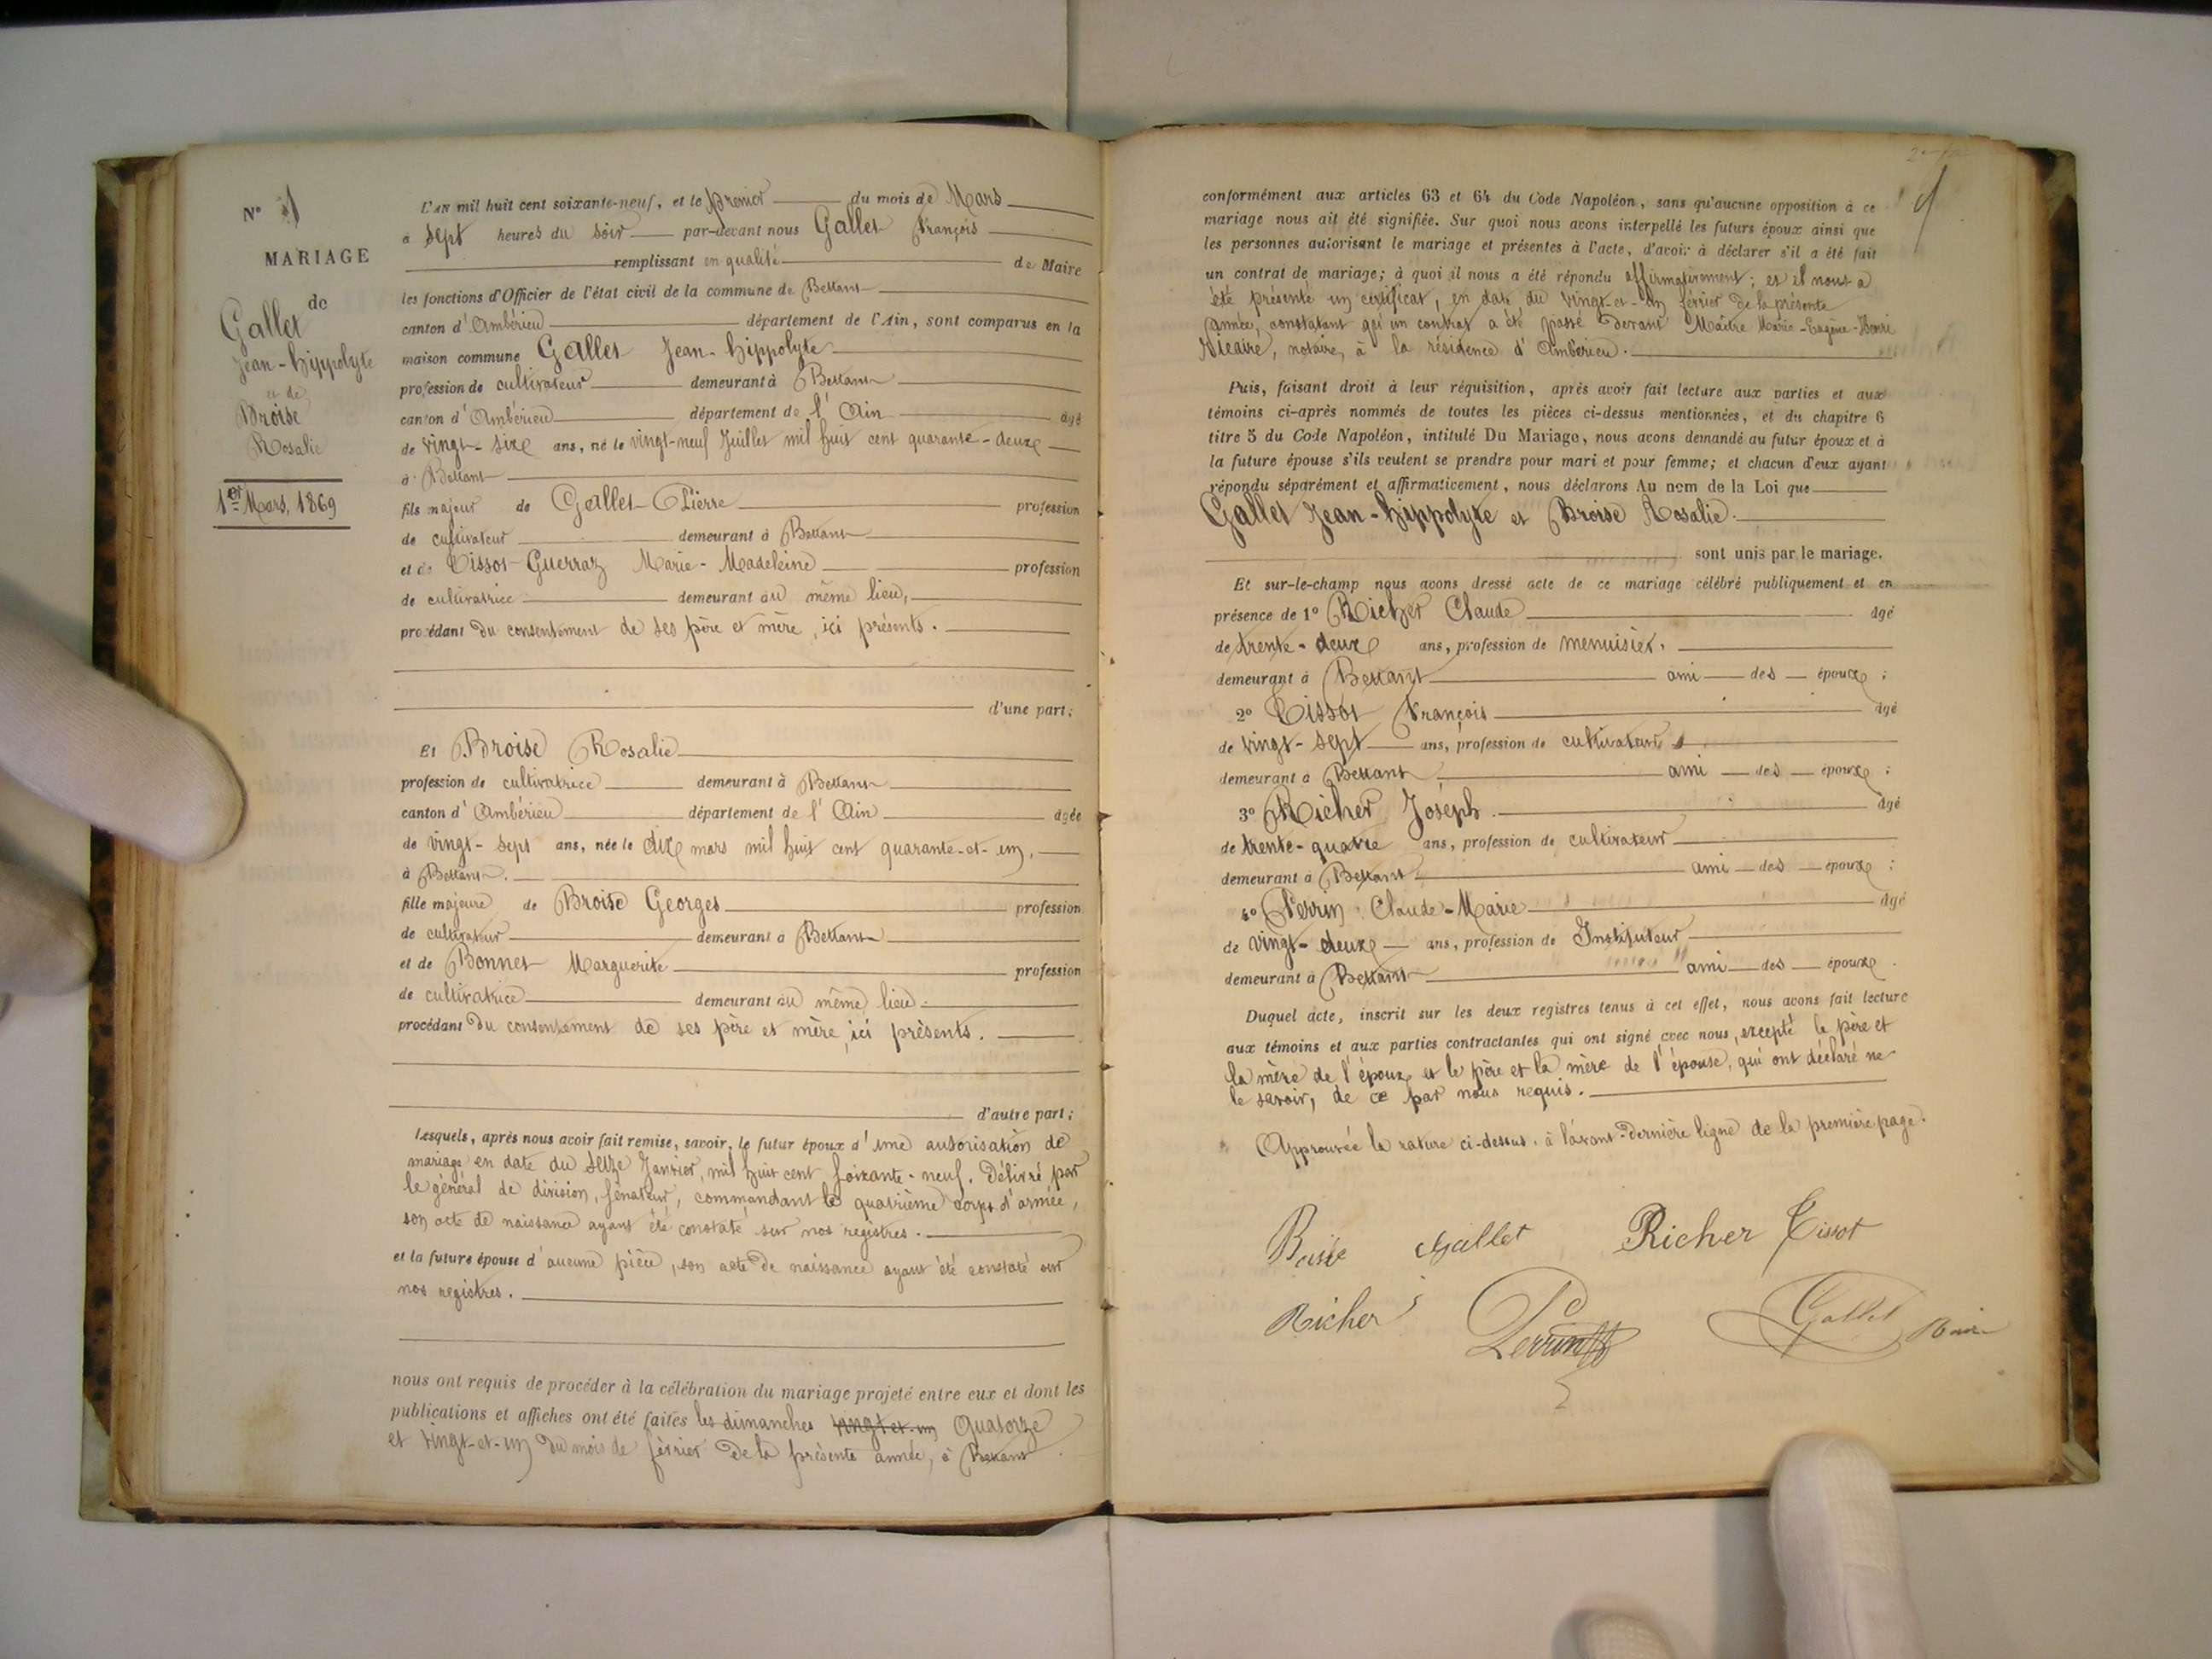 N° 1
MARIAGE
de
Gallet
Jean-Hippolyte
et de
Broise
Rosalie
1er Mars, 1869
L'AN mil huit cent soixante-neuf, et le premier du mois de Mars
à sept heures du soir par-devant nous Gallet François
remplissant en qualité de Maire
les fonctions d'Officier de l'état civil de la commune de Bettant
canton d'Ambérieu département de l'Ain, sont comparus en la
maison commune Gallet Jean-Hippolyte
profession de cultivateur demeurant à Bettant
canton d'Ambérieu département de l'Ain agé
de vingt-six ans, né le vingt-neuf Juillet mil huit cent quarante-deux
à Bettant
fils majeur de Gallet Pierre profession
de cultivateur demeurant à Bettant
et de Tissot-Guerraz Marie-Madeleine profession
de cultivatrice demeurant au même lieu,
procédant du consentement de ses père et mère, ici présents.
d'une part;
Et Broise Rosalie
profession de cultivatrice demeurant à Bettant
canton d'Ambérieu département de l'Ain agée
de vingt-sept ans, née le dix mars mil huit cent quarante-et-un,
à Bettant.
fille majeure de Broise Georges profession
de cultivateur demeurant à Bettant
et de Bonnet Marguerite profession
de cultivatrice demeurant au même lieu
procédant du consentement de ses père et mère, ici présents.
d'autre part;
Lesquels, après nous avoir fait remise, savoir, le futur époux d'une autorisation de
mariage en date du seize Janvier, mil huit cent soixante-neuf. Délivré par
le général de division, sénateur, commandant le quatrième corps d'armée,
son acte de naissance ayant été constaté sur nos registres.
et la future épouse d'aucune pièce, son acte de naissance ayant été constaté sur
nos registres.
nous ont requis de procéder à la célébration du mariage projeté entre eux et dont les
publications et affiches ont été faites les dimanches vingt et-un Quatorze
et vingt-et-un du mois de février de la présente année, à Bettant
conformément aux articles 63 et 64 du Code Napoléon, sans qu'aucune opposition à ce
mariage nous ait été signifiée. Sur quoi nous avons interpellé les futurs époux ainsi que
les personnes autorisant le mariage et présentes à l'acte, d'avoir à déclarer s'il a été fait
un contrat de mariage; à quoi il nous a été répondu affirmativement; et il nous a
été présenté un certificat, en date du vingt-et-un février de la présente
année, constatant qu'un contrat a été passé devant Maître Marie-Eugène-Henri
Vicaire, notaire, à la résidence d'Ambérieu.
Puis, faisant droit à leur réquisition, après avoir fait lecture aux parties et aux
témoins ci-après nommés de toutes les pièces ci-dessus mentionnées, et du chapitre 6
titre 5 du Code Napoléon, intitulé Du Mariage, nous avons demandé au futur époux et à
la future épouse s'ils veulent se prendre pour mari et pour femme; et chacun d'eux ayant
répondu séparément et affirmativement, nous déclarons Au nom de la Loi que
Gallet Jean-Hippolyte et Broise Rosalie.
sont unis par le mariage.
Et sur-le-champ nous avons dressé acte de ce mariage célébré publiquement et en
présence de 1° Richer Claude agé
de trente-deux ans, profession de menuisier.
demeurant à Bettant ami des époux ;
2° Tissot François agé
de vingt-sept ans, profession de cultivateur
demeurant à Bettant ami des époux ;
3° Richer Joseph. agé
de trente-quatre ans, profession de cultivateur
demeurant à Bettant ami des époux ;
4° Perrin Claude-Marie agé
de vingt-deux ans, profession de Instituteur
demeurant à Bettant ami des époux.
Duquel acte, inscrit sur les deux registres tenus à cet effet, nous avons fait lecture
aux témoins et aux parties contractantes qui ont signé avec nous, excepté le père et
la mère de l'époux et le père et la mère de l'épouse, qui ont déclaré ne
le savoir, de ce par nous requis.
Approuvée la rature ci-dessus, à l'avant-dernière ligne de la première page.
Gallet Richer Tissot
Richer Perrin Gallet